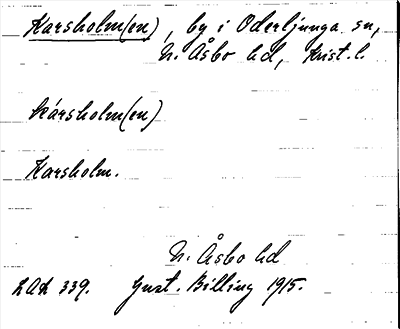 Karsholm(en), by i Oderljunga sn,
N. Åsbo hd, Krist. l.
kársholm(en)
Karsholm.
N. Åsbo hd
LAL 339. Gust. Billing 1915.